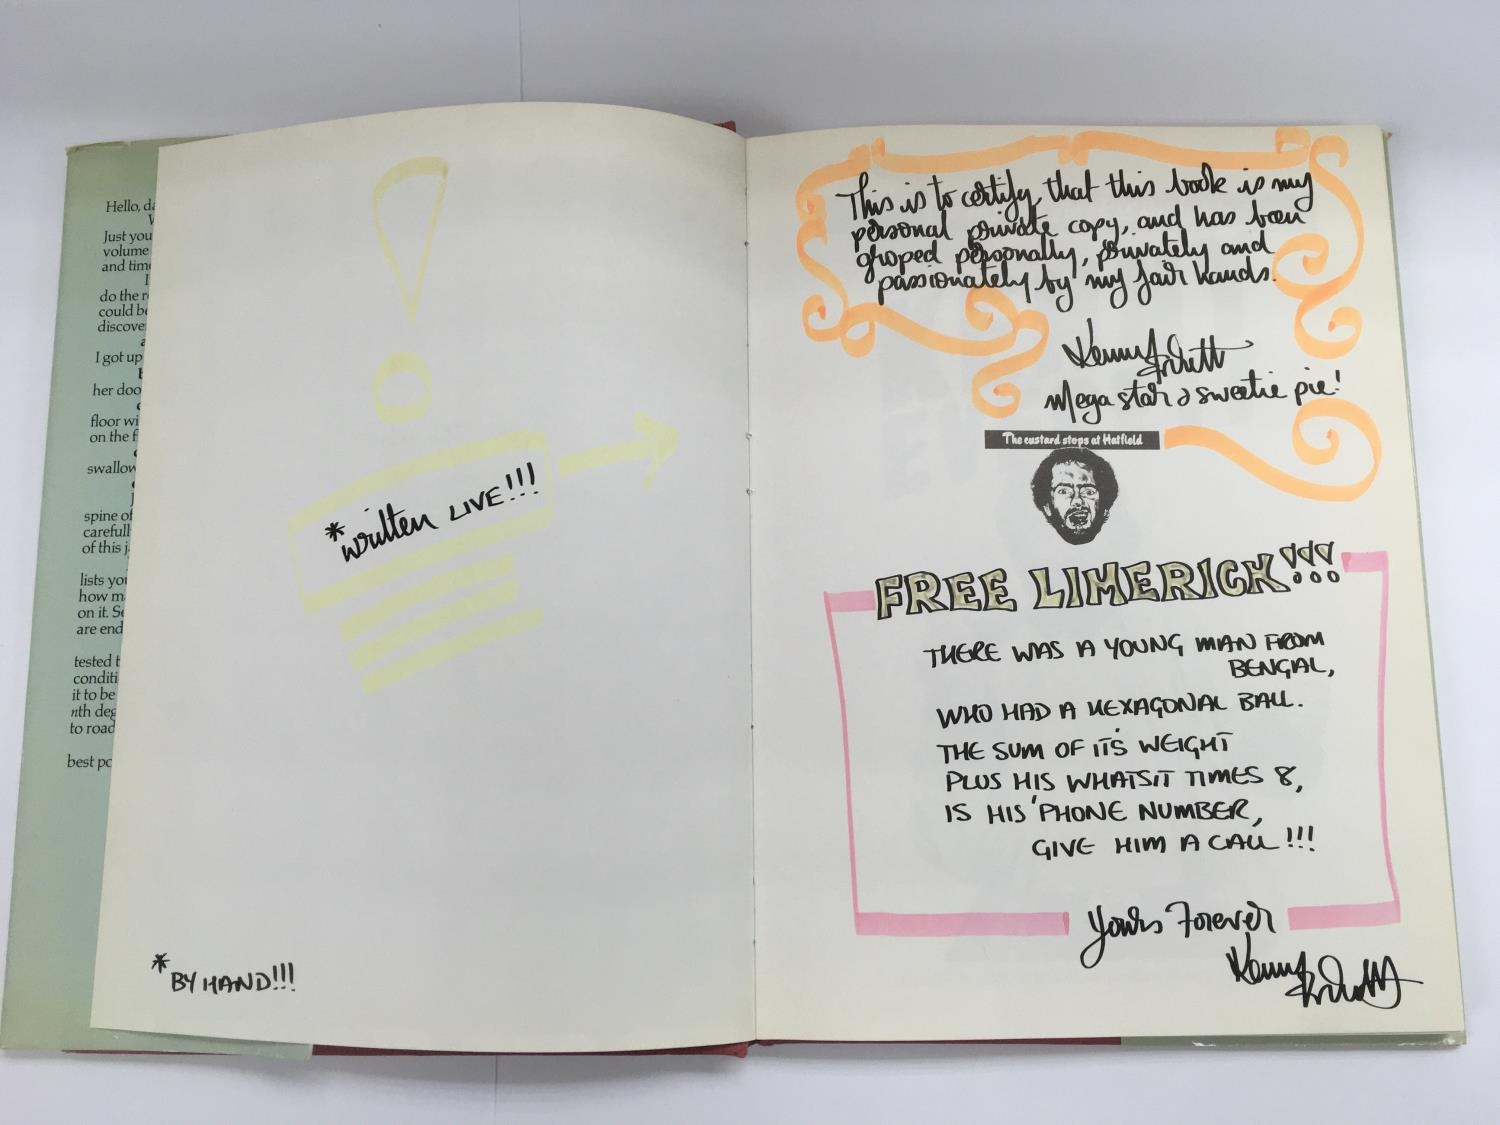 Hello, da
W
Just you
volume
and time
I
do the r
could be
discove
a
I got up
b
her doo
floor wi
on the f
swallow
spine of
carefull
of this j
lists you
how m
on it. Se
are end
tested t
conditi
it to be
nth deg
to road
best po
*written LIVE!!!
*BY HAND!!!
This is to certify, that this book is my
personal private copy, and has been
groped personally, privately and
passionately by my fair hands.
Kenny Everett
Mega star & sweetie pie!
The custard stops at Hatfield
FREE LIMERICK!!!
THERE WAS A YOUNG MAN FROM
BENGAL,
WHO HAD A HEXAGONAL BALL.
THE SUM OF IT'S WEIGHT
PLUS HIS WHATSIT TIMES 8,
IS HIS 'PHONE NUMBER,
GIVE HIM A CALL!!!
Yours Forever
Kenny Everett